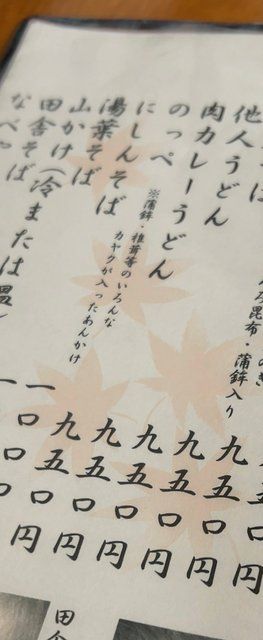 昆布・蒲鉾入り
五〇円
他人うどん
九五〇円
肉カレーうどん
九五〇円
のっぺ
※蒲鉾・椎茸等のいろんな
カヤクが入ったあんかけ
九五〇円
にしんそば
九五〇円
湯葉そば
九五〇円
山かけ(冷または温)
一〇〇〇円
田舎そば
一〇〇
なべや
田舎